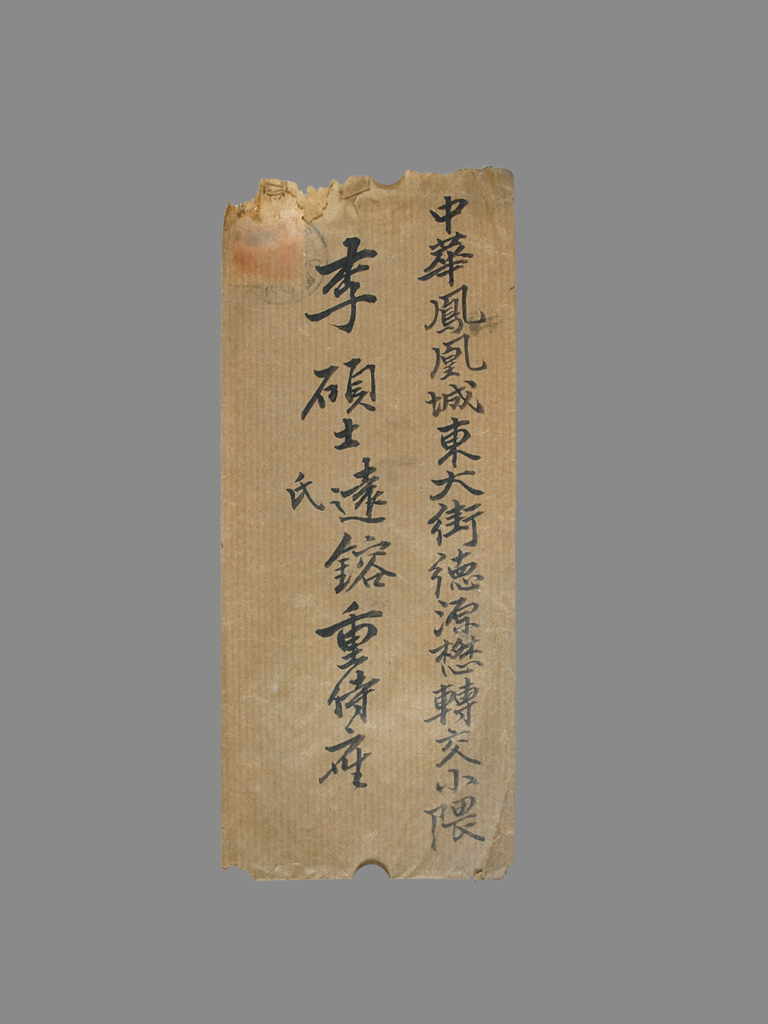 中華鳳凰城東大街德源懋轉交小隈
李碩士遠鎔重侍座
氏